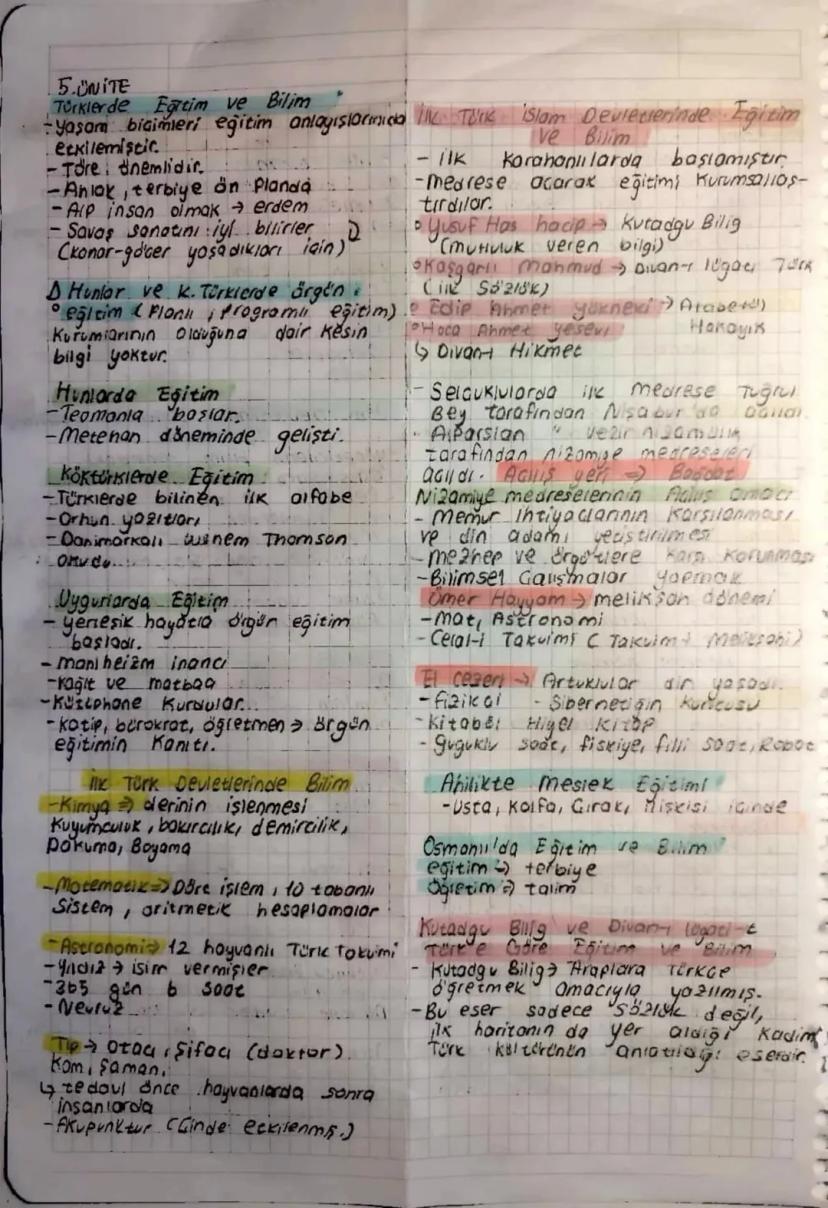 5.ÜNİTE
Türklerde Eğitim ve Bilim
- Yaşam biçimleri eğitim anlayışlarınıda
etkilemiştir.
- Töre; önemlidir.
- Ahlak, terbiye ön planda
- Alp insan olmak → erdem
- Savaş sanatını iyi bilirler
(konar-göçer yaşadıkları için)
Hunlar ve K. Türklerde örgün
eğitim (Planlı, Programlı eğitim)
Kurumlarının olduğuna dair kesin
bilgi yoktur.
Hunlarda Eğitim
- Teomanla başlar.
- Metehan döneminde gelişti.
Köktürklerde Eğitim
- Türklerde bilinen ilk alfabe
- Orhun yazıtları
- Danimarkalı Thomson
okudu.
Uygurlarda Eğitim
- yerleşik hayatla örgün eğitim
başladı.
- maniheizm inancı
- Kağıt ve matbaa
- Kütüphane Kurdular.
- katip, bürokrat, öğretmen → örgün
eğitimin Kanıtı.
İlk Türk Devletlerinde Bilim
- Kimya ⇒ derinin işlenmesi
Kuyumculuk, bakırcılık, demircilik,
Dokuma, Boyama
- Matematik ⇒ Dört işlem, 10 tabanlı
Sistem, aritmetik hesaplamalar
- Astronomi ⇒ 12 hayvanlı Türk Takvimi
- Yıldız → isim vermişler
- 365 gün 6 saat
- Nevruz
Tıp → Otacı, Şifacı (doktor)
Kam, Şaman,
↳ tedavi önce hayvanlarda sonra
insanlarda
- Akupunktur (Çinde etkilenmiş.)
İlk Türk İslam Devletlerinde Eğitim
ve Bilim
- ilk Karahanlılarda başlamıştır
- Medrese açarak eğitimi Kurumsallaş-
tırdılar.
• Yusuf Has hacip → Kutadgu Bilig
(mutluluk veren bilgi)
• Kaşgarlı Mahmud → Divan-ı lügati Türk
(ilk Sözlük)
• Edip Ahmet yükneki → Atabetül
Hakayık
• Hoca Ahmet Yesevi
↳ Divan-ı Hikmet
- Selçuklularda ilk medrese Tuğrul
Bey tarafından Nişabur'da açıldı.
- Alparslan " vezir nizamülk
tarafından nizamiye medreseleri
açıldı. Açılış yeri ⇒ Bağdat
Nizamiye medreselerinin Açılış amacı
- Memur ihtiyaçlarının karşılanması
ve din adamı yetiştirilmesi
- mezhep ve örgütlere karşı korunması
- Bilimsel Çalışmalar yapmak
Ömer Hayyam → melikşah dönemi
- Mat, Astronomi
- Celal-i Takvimi ( Takvim-i Melikşahi)
El cezeri → Artuklular da yaşadı.
- fizikçi - Sibernetiğin Kurucusu
- Kitabı: Hiyel Kitap
- guguklu saat, fiskiye, filli saat, Robot
Ahilikte Meslek Eğitimi
- Usta, Kalfa, Çırak, ilişkisi içinde
Osmanlı'da Eğitim ve Bilim
eğitim ⇒ terbiye
Öğretim ⇒ talim
Kutadgu Bilig ve Divan-ı lügati-t
Türk'e Göre Eğitim ve Bilim
- Kutadgu Bilig → Araplara Türkçe
öğretmek amacıyla yazılmış.
- Bu eser sadece sözlük değil,
ilk haritanın da yer aldığı kadim
Türk kültürünün anlatıldığı eserdir.